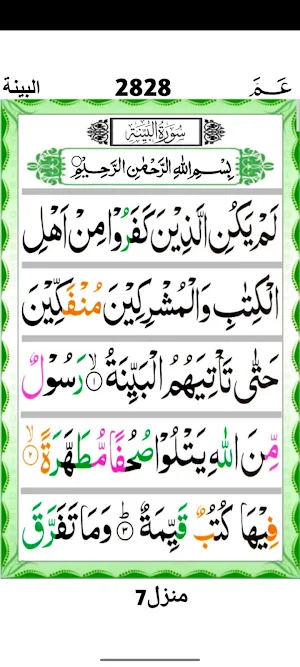 عَمَّ 2828 البينة
سُوْرَةُ الْبَيِّنَةِ
بِسْمِ اللّٰهِ الرَّحْمٰنِ الرَّحِيْمِ
لَمْ يَكُنِ الَّذِيْنَ كَفَرُوْا مِنْ اَهْلِ
الْكِتٰبِ وَالْمُشْرِكِيْنَ مُنْفَكِّيْنَ
حَتّٰى تَاْتِيَهُمُ الْبَيِّنَةُ ۙ‏﴿۱﴾ رَسُوْلٌ
مِّنَ اللّٰهِ يَتْلُوْا صُحُفًا مُّطَهَّرَةً ۙ‏﴿۲﴾
فِيْهَا كُتُبٌ قَيِّمَةٌ ؕ‏﴿۳﴾ وَمَا تَفَرَّقَ
منزل7